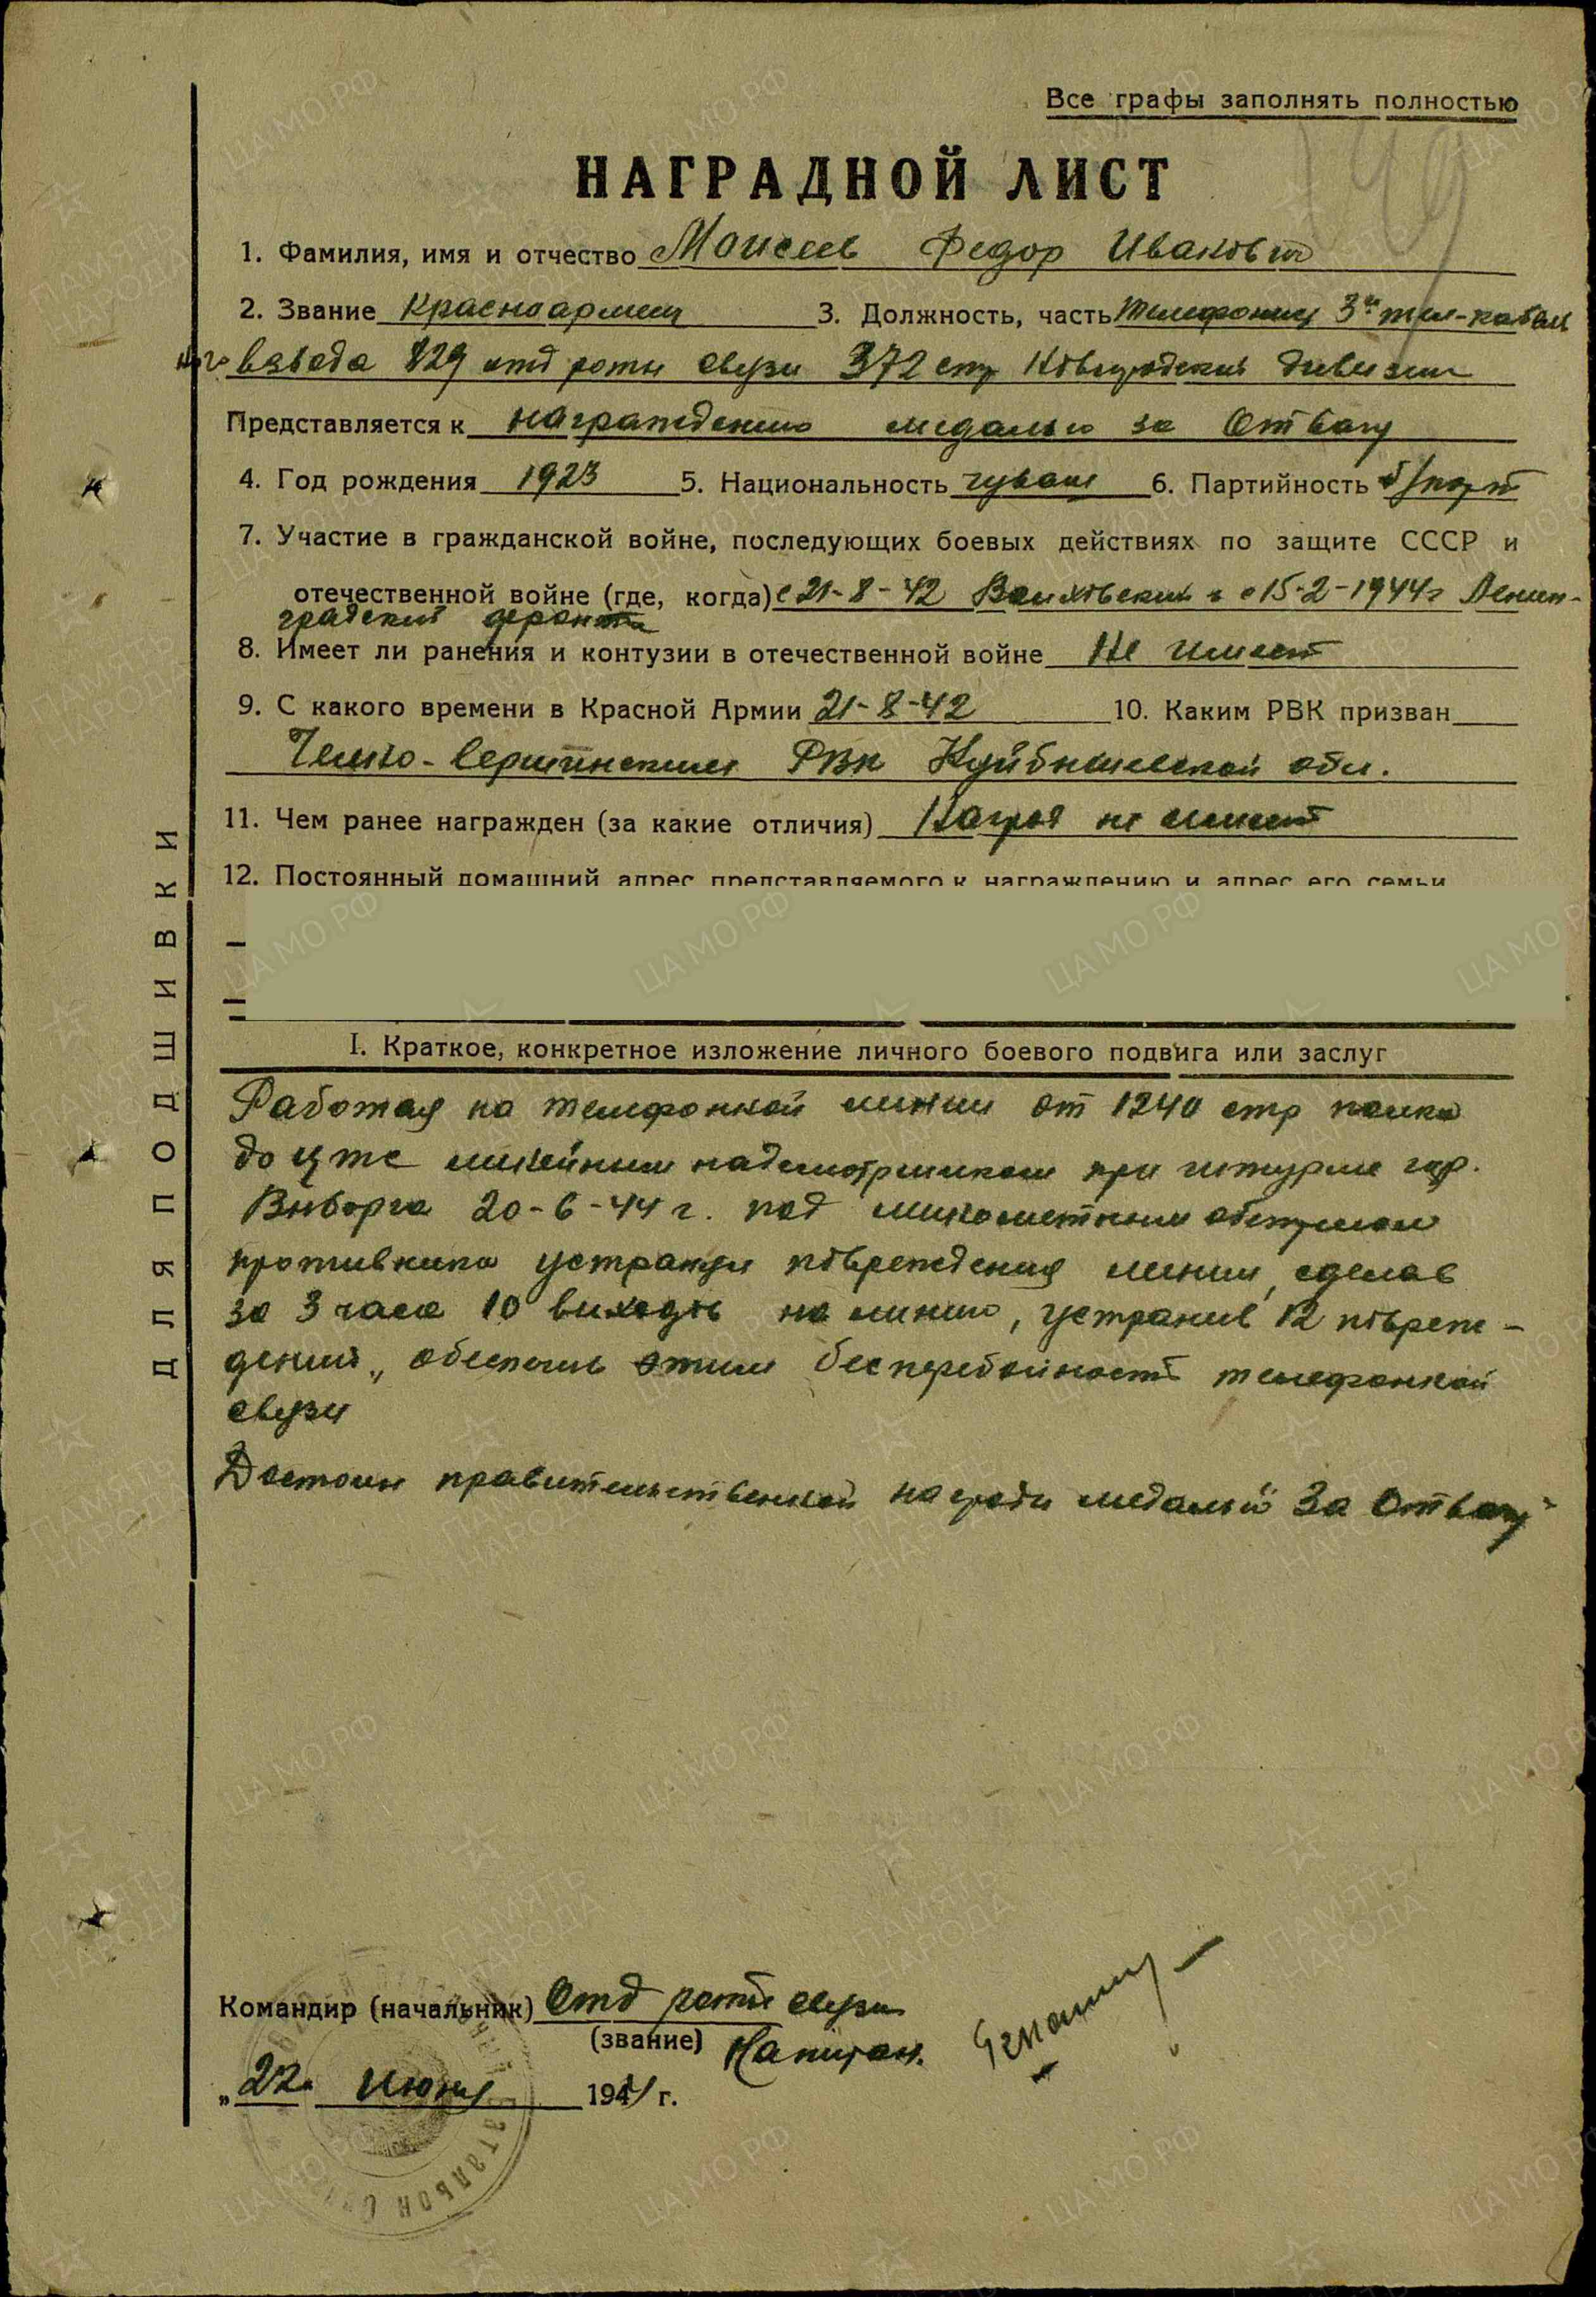 Все графы заполнять полностью
149
НАГРАДНОЙ ЛИСТ
1. Фамилия, имя и отчество Моисеев Федор Иванович
2. Звание Красноармеец 3. Должность, часть телефонист 3го тел-кабель
ного взвода 829 отд роты связи 372 стр Новгородской дивизии
Представляется к награждению медалью за Отвагу
4. Год рождения 1923 5. Национальность чуваш 6. Партийность б/парт
7. Участие в гражданской войне, последующих боевых действиях по защите СССР и
отечественной войне (где, когда) с 21-8-42 Волховский и с 15-2-1944г Ленин-
градский фронт
8. Имеет ли ранения и контузии в отечественной войне Не имеет
9. С какого времени в Красной Армии 21-8-42 10. Каким РВК призван
Челно-Вершинским РВК Куйбышевской обл.
11. Чем ранее награжден (за какие отличия) Наград не имеет
12. Постоянный домашний адрес представляемого к награждению и адрес его семьи
I. Краткое, конкретное изложение личного боевого подвига или заслуг
Работая на телефонной линии от 1240 стр полка
до цтс линейным надсмотрщиком при штурме гор.
Выборга 20-6-44 г. под минометным обстрелом
противника устраняя повреждения линии, сделав
за 3 часа 10 выходов на линию, устранив 12 повреж-
дений, обеспечив этим бесперебойность телефонной
связи
Достоин правительственной награды медалью За Отвагу
Командир (начальник) Отд роты связи
(звание) Капитан
„22" июня 1944 г.
батальон
ДЛЯ ПОДШИВКИ
ЦА МО РФ
ПАМЯТЬ НАРОДА